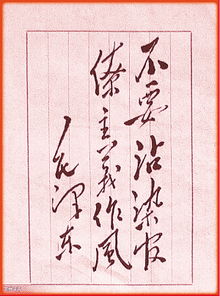 不要沾染官
僚主义作风
毛泽东